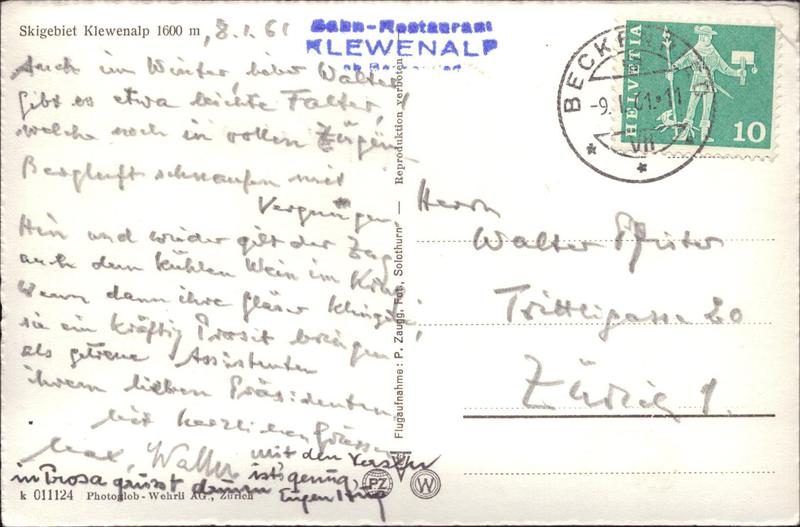 Skigebiet Klewenalp 1600 m, 8.1.61
Auch im Winter, lieber Walter,
gibt es etwa leichte Falter,
welche noch in vollen Zügen
Bergluft schnaufen mit
Vergnügen.
Hin und wieder gilt der Zug
auch dem kühlen Wein im Krug
Wenn dann ihre Gläser klingen,
sie ein kräftig Prosit bringen
als getreue Assistenten
ihrem lieben Präsidenten.
Mit herzlichen Grüssen
Max, Walter
mit den Versen
ist's genug,
in Prosa grüsst drum Eugen Hug
k 011124 Photoglob-Wehrli AG., Zürich
Bahn-Restaurant
KLEWENALP
ob Beckenried
Flugaufnahme: P. Zaugg, Fot., Solothurn — Reproduktion verboten
PZ W
BECKENRIED
-9.I.61.-11
VII
HELVETIA
10
Herrn
Walter Pfister
Trittligasse 20
Zürich 1.